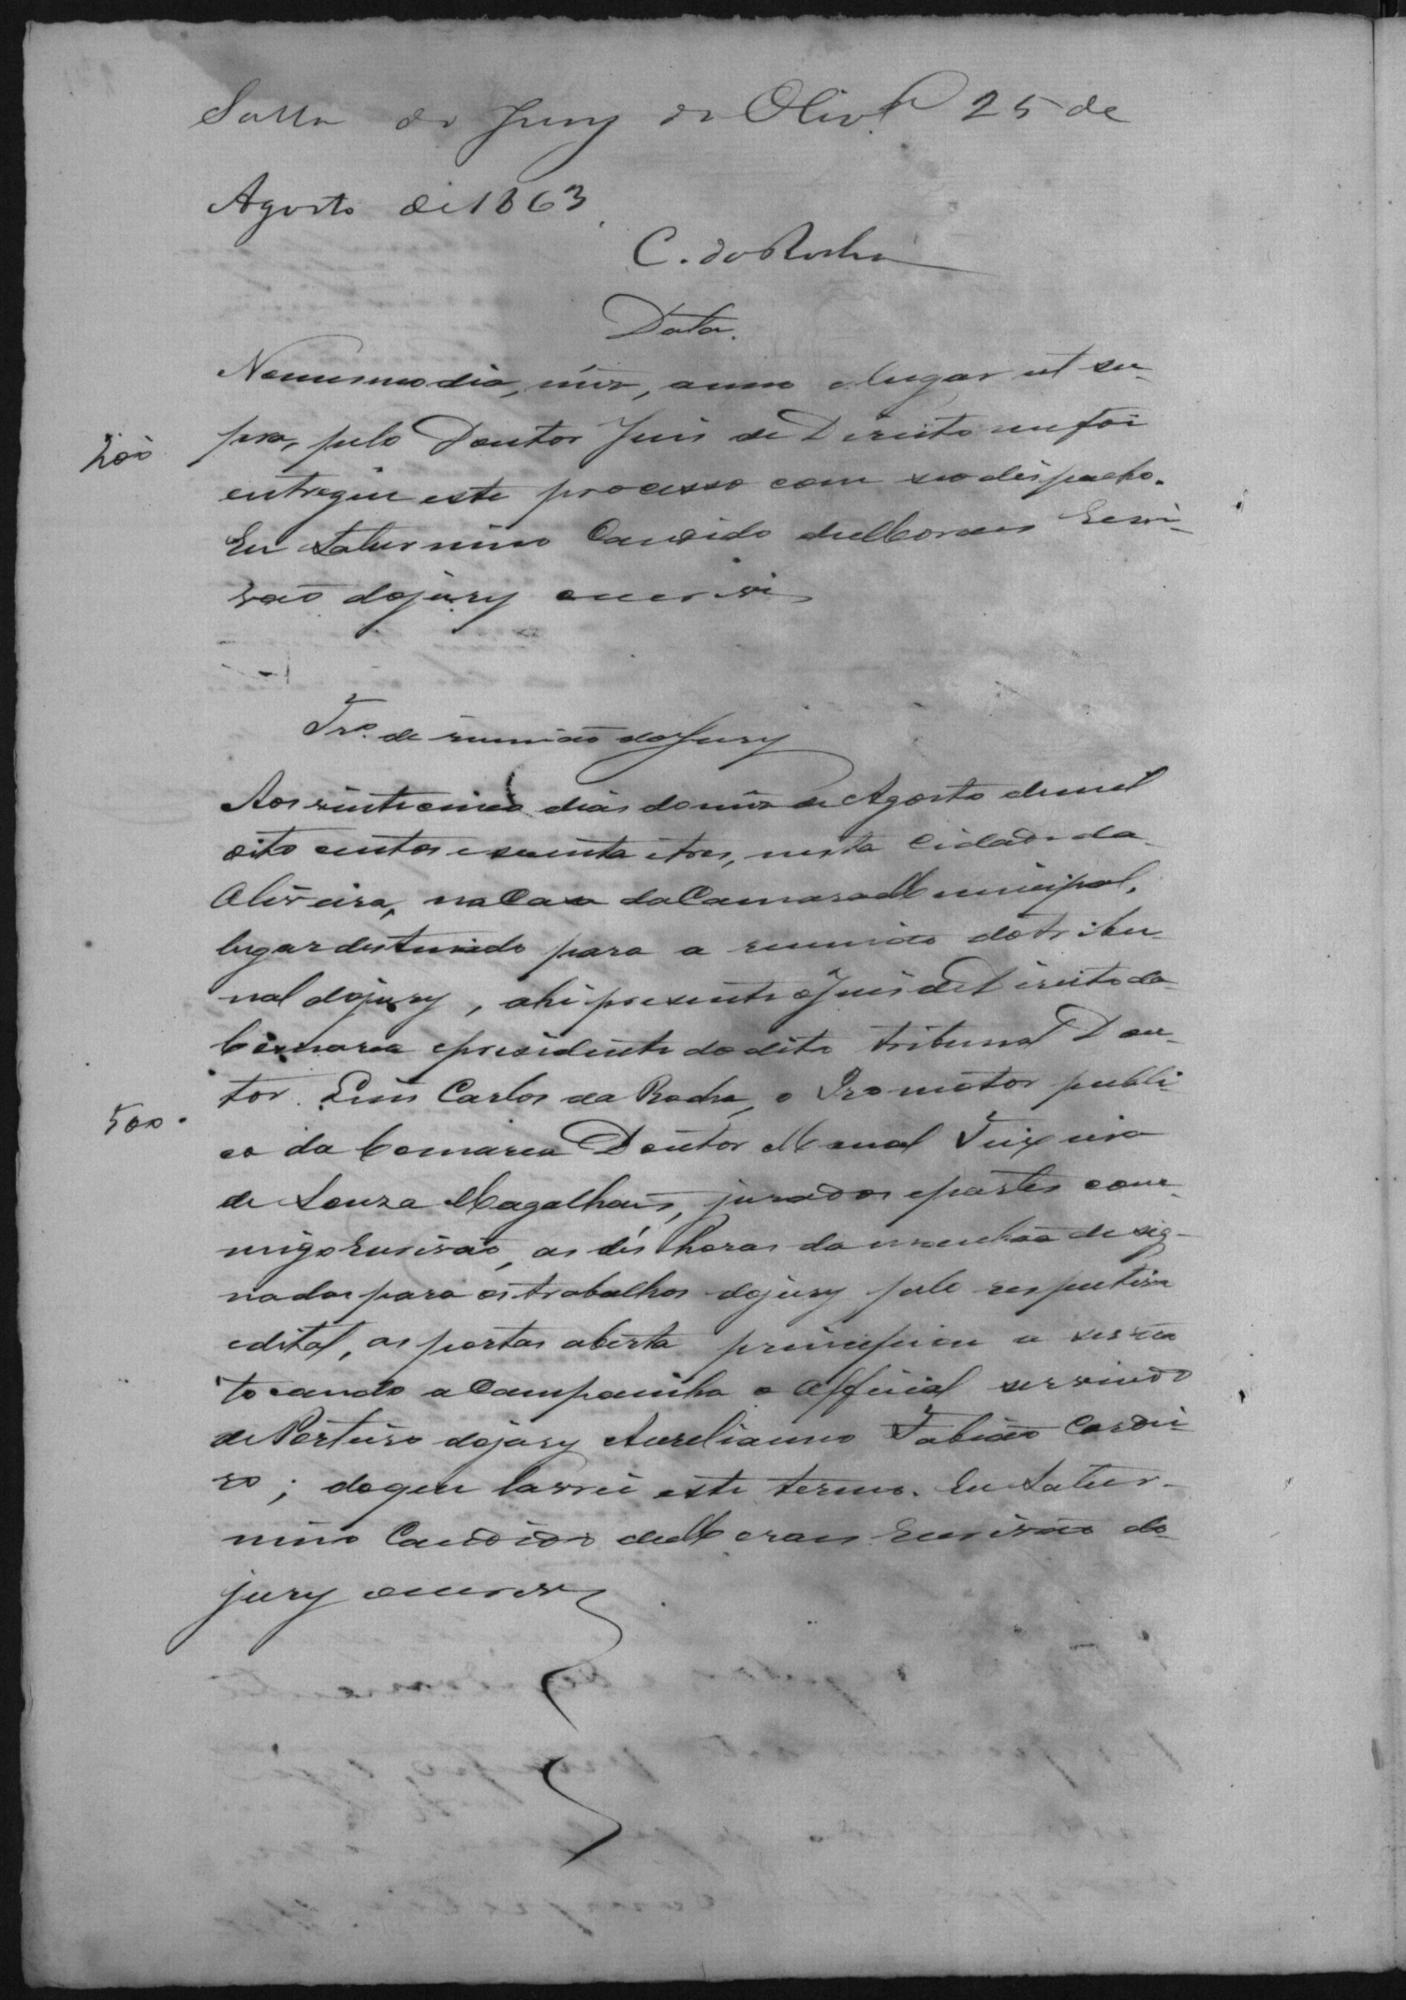 Salla do Jury da Olivrª 25 de
Agosto de 1863
C. da Rocha
Data.
No mesmo dia, mez, anno e lugar ut su-
pra, pelo Doutor Juis de Direito me foi
200
entregue este processo com seo despacho.
Eu Saturnino Candido de Moraes Escri-
vaõ do jury o escrevi
Trº de reuniaõ do Jury
Aos vinte cinco dias do mez de Agosto de mil
oito centos e secenta e tres, nesta Cidade da
Oliveira, na Casa da Camara Municipal,
lugar destinado para a reuniaõ do tribu-
nal do jury, ahi presente o Juis de Direito da
Comarca e presidente do dito tribunal Dou-
tor Luis Carlos da Rocha, o Promotor publi
500
co da Comarca Doutor Manoel Teixeira
de Souza Magalhaẽs, jurados e partes com-
migo Escrivaõ, as dés horas da manhaã desig-
nadas para os trabalhos do jury pelo respectivo
edital, as portas aberta principiou a sessaõ
tocando a Campainha o Official servindo
de Porteiro do jury Aurelianno Fabiaõ Cordei-
ro; do que lavrei este termo. Eu Satur-
nino Candido de Moraes Escrivaõ do
jury o escrevi